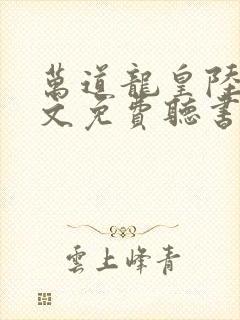 萬道龍皇陸
文免費聽書
雲上峰青